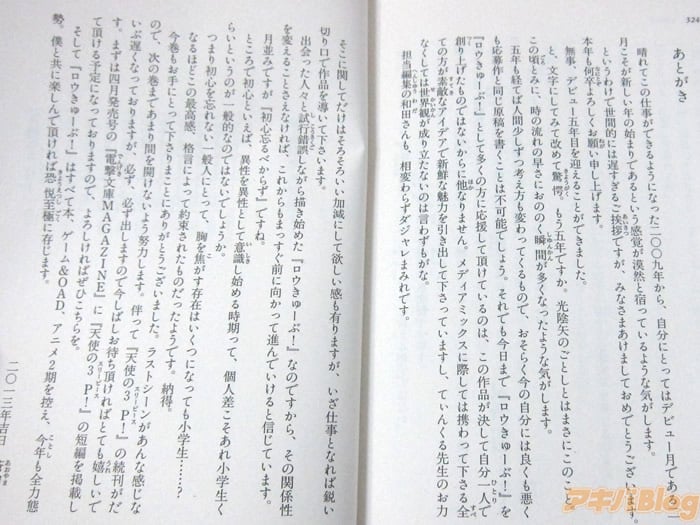 324
あとがき
晴れてこの仕事ができるようになった二〇〇九年から、自分にとってはデビュー月である二
月こそが新しい年の始まりであるという感覚が漠然と宿っているような気がします。
というわけで世間的には遅すぎるご挨拶ですが、みなさまあけましておめでとうございます。
本年も何卒よろしくお願い申し上げます。
無事、デビュー五年目を迎えることができました。
と、文字にしてみて改めて驚愕。もう五年ですか。光陰矢のごとしとはまさにこのこと
この頃とみに、時の流れの早さにおののく瞬間が多くなったような気がします。
五年も経てば人間少しずつ考え方も変わってくるもので、おそらく今の自分には良くも悪く
も応募作と同じ原稿を書くことは不可能でしょう。それでも今日まで『ロウきゅーぶ!』を
『ロウきゅーぶ!』として多くの方に応援して頂けているのは、この作品が決して自分一人で
創り上げたものではないからに他なりません。メディアミックスに際しては携わって下さる全
ての方が素敵なアイデアで新鮮な魅力を引き出して下さっていますし、てぃんくる先生のお力
なくしては世界観が成り立たないのは言わずもがな。
担当編集の和田さんも、相変わらずダジャレまみれです。
そこに関してだけはそろそろいい加減にして欲しい感も有りますが、いざ仕事となれば鋭い
切り口で作品を導いて下さいます。
出会った人々と試行錯誤しながら描き始めた『ロウきゅーぶ!』なのですから、その関係性
を変えることさえなければ、これからもまっすぐ前に向かって進んでいけると信じています。
月並みですが『初心忘るべからず』ですね。
ところで初心といえば、異性を異性として意識し始める時期って、個人差こそあれ小学生く
らいというのが一般的なのではないでしょうか。
つまり初心を忘れない一般人にとって、胸を焦がす存在はいくつになっても小学生……?
なるほどこの最高感、格言によって約束されたものだったようです。納得。
今巻もお手にとって下さりまことにありがとうございました。ラストシーンがあんな感じな
ので、次の巻まであまり間を開けないよう努力します。伴って『天使の3P!』の続刊がだ
いぶ遅くなっておりますが、必ず、必ず出しますので今しばしお待ち頂ければとても嬉しいで
す。まずは四月発売号の『電撃文庫MAGAZINE』に『天使の3P!』の短編を掲載し
て頂ける予定になっておりますので、よろしければぜひこちらを。
そして『ロウきゅーぶ!』はすべて本、ゲーム&OAD、アニメ2期を控え、今年も全力態
勢。僕と共に楽しんで頂ければ恐悦至極に存じます。
二〇一三年吉日
アキバBlog